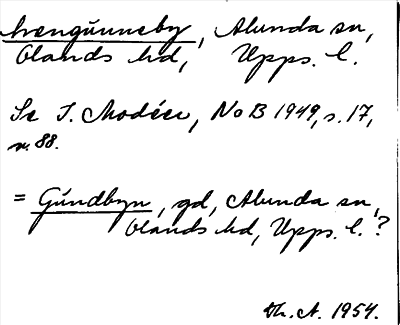 hrengúnneby, Alunda sn,
Olands hd, Upps. l.
Se I. Modéer, NoB 1949, s. 17,
n. 88.
= Gúndbyn, gd, Alunda sn,
Olands hd, Upps. l.?
Th. A. 1954.